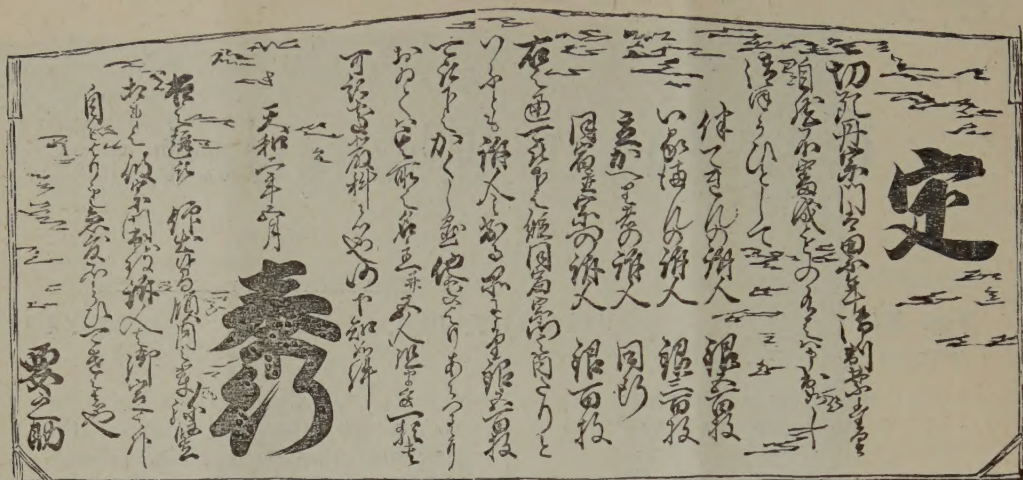 定
切死丹宗門は累年御制禁たり
自然不審成もの有之ハ申出へし
御ほうひとして
伴てれんの訴人 銀五百枚
いるまんの訴人 銀三百枚
立かへり者の訴人 同断
同宿並宗門の訴人 銀百枚
右之通可被下之縦同宿宗門之内たりと
いふとも訴人に出る品により銀五百枚
可被下之かくし置他所よりあらはるゝに
おゐてハ其所之名主並五人組迄一類共
可被処厳科者也仍下知如件
天和二年五月
奉行
要之助